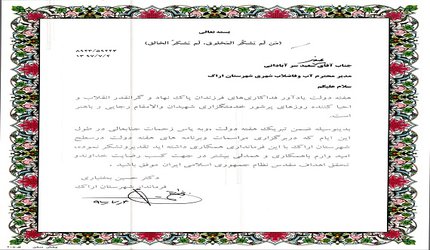 بسمه تعالی
(من لم تشکر المخلوق، لم تشکر الخالق)
۸۹۲۳/۵۹۲۲۳
۱۳۹۷/۷/۲
جناب آقای سعید سرآبادانی
مدیر محترم آب وفاضلاب شهری شهرستان اراک
سلام علیکم
هفته دولت یادآور فداکاری‌های فرزندان پاک نهاد و گرانقدر انقلاب و
احیا کننده روزهای پرشور خدمتگزاری شهیدان والامقام رجایی و باهنر
است.
بدینوسیله ضمن تبریک هفته دولت، به پاس زحمات جنابعالی در طول
این ایام که دربرگزاری مراسمات وبرنامه های هفته دولت درسطح
شهرستان اراک با این فرمانداری همکاری داشته اید، تقدیروتشکر نموده،
امید وارم باهمکاری و همدلی بیشتر در جهت کسب رضایت خداوندو
تحقق اهداف مقدس نظام جمهوری اسلامی ایران موفق باشید.
دکتر حسین بختیاری
فرماندار شهرستان اراک